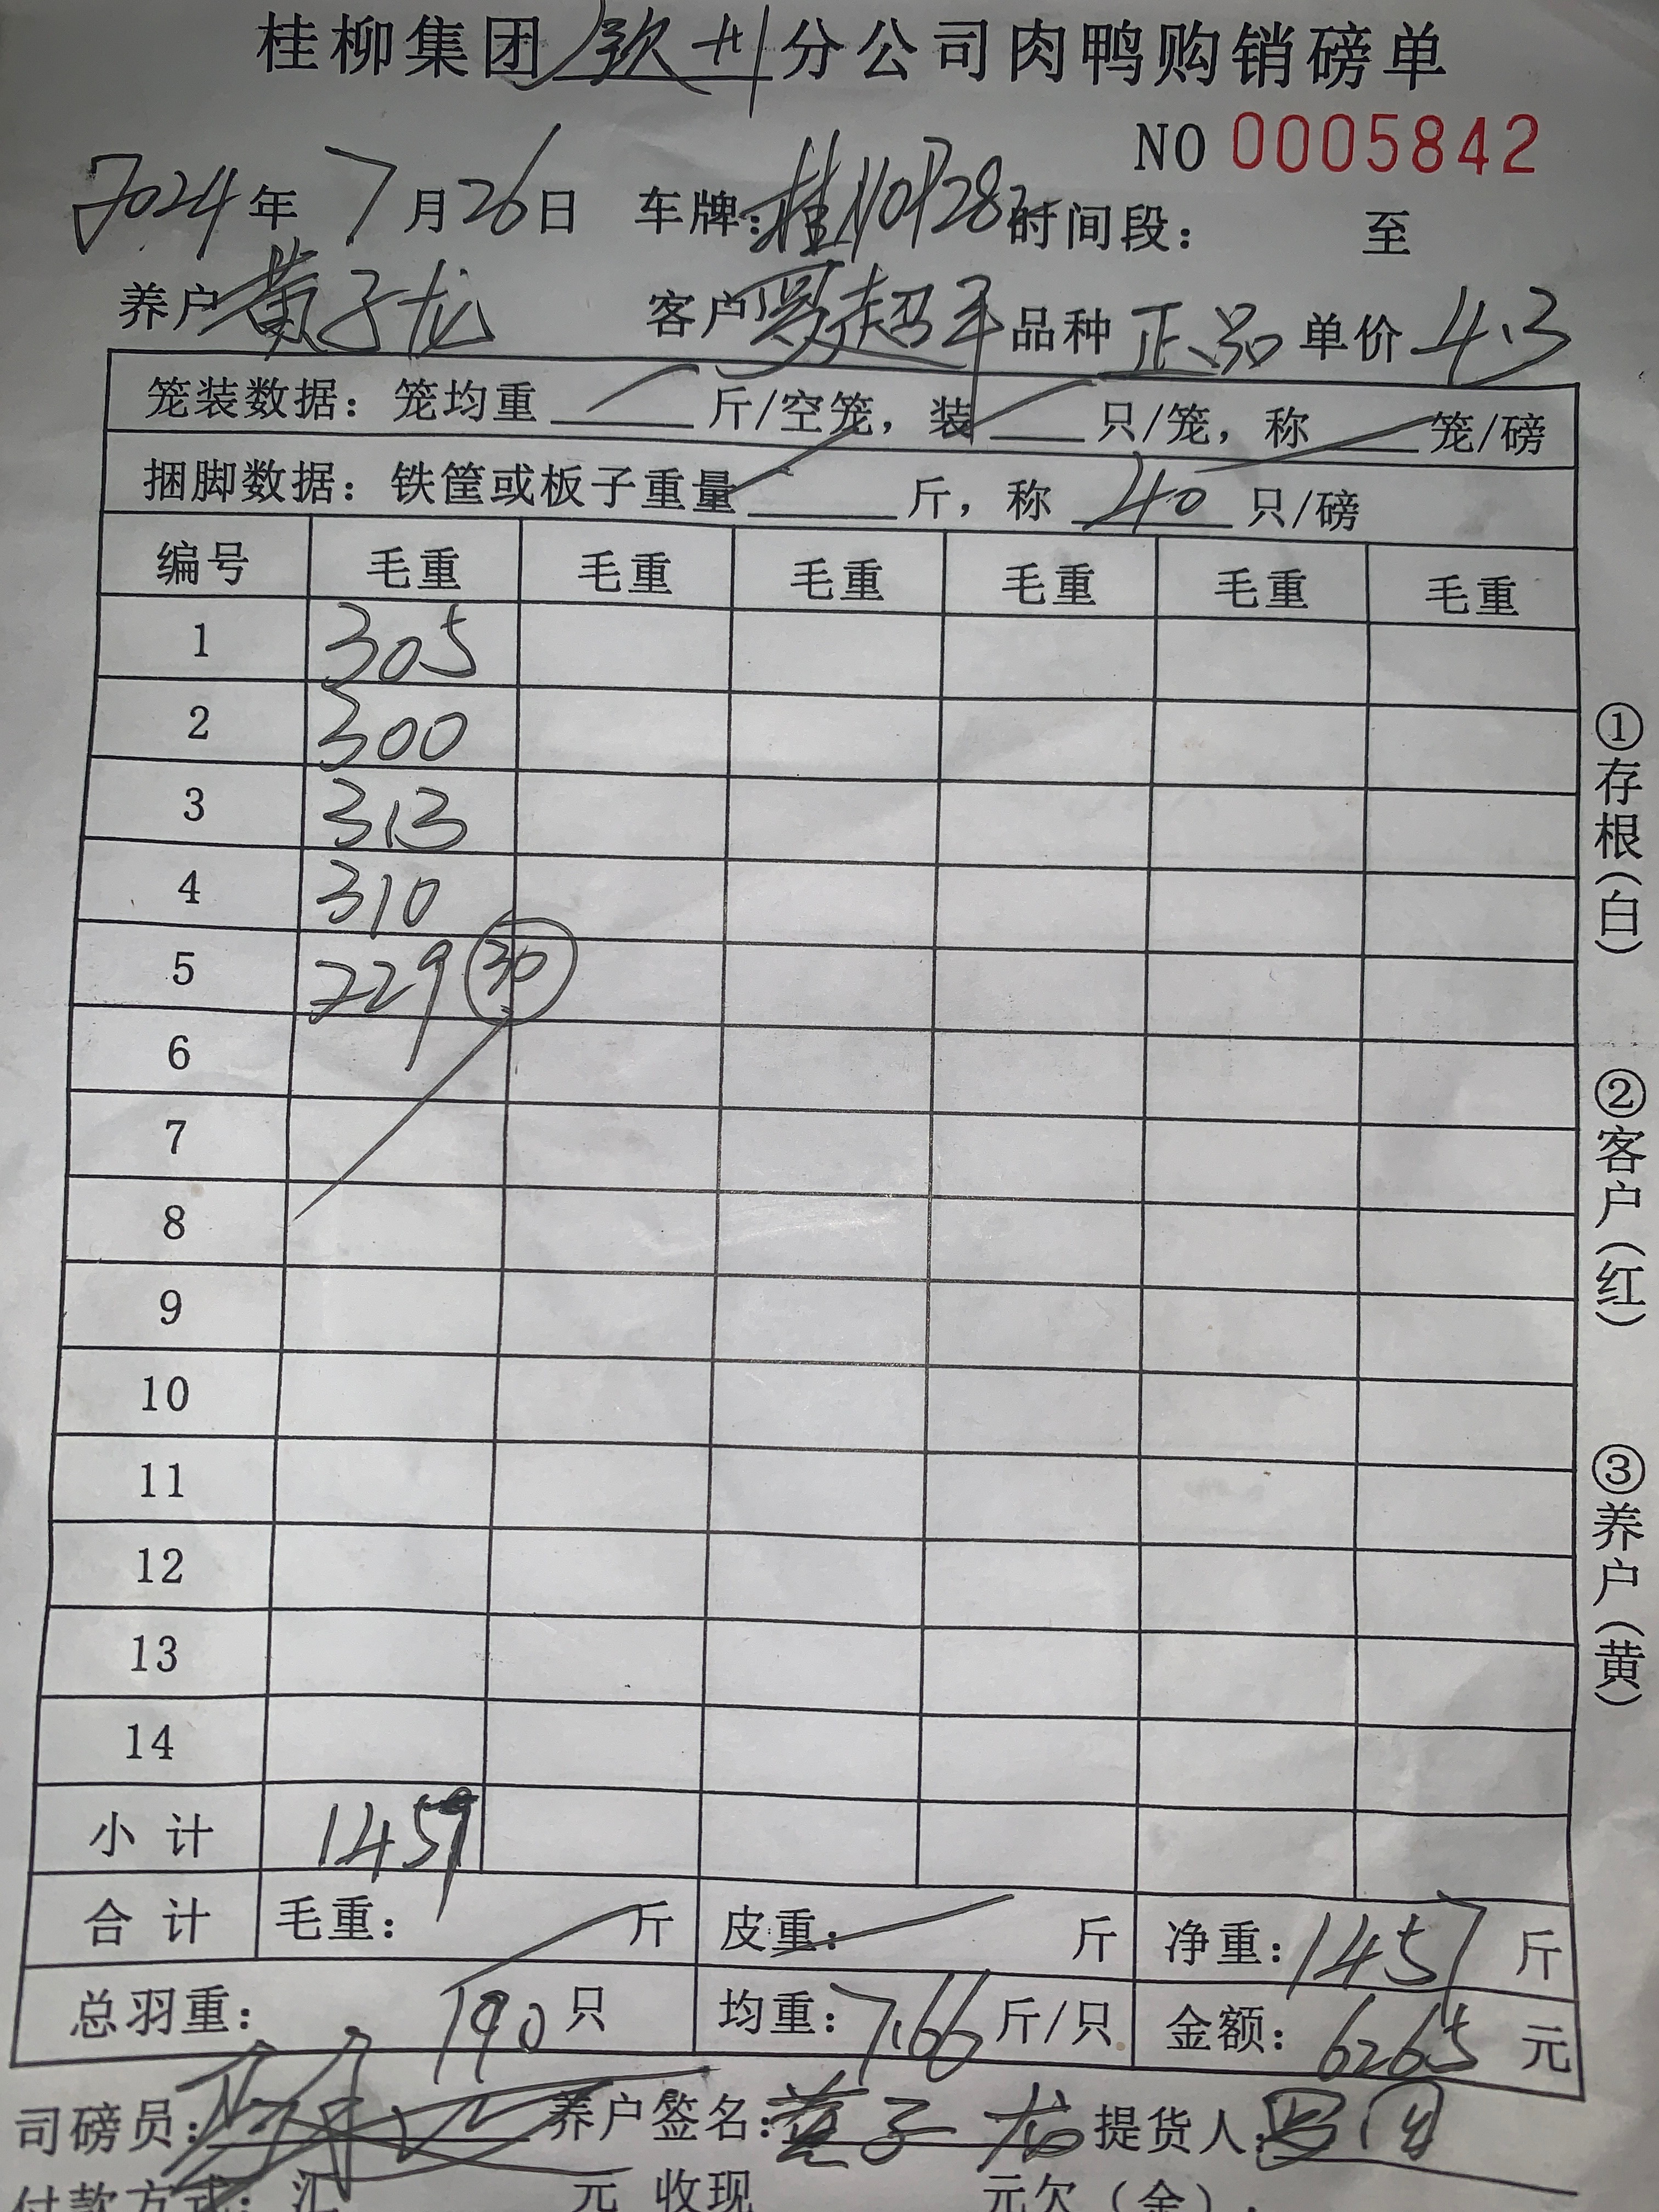 桂柳集团钦州分公司肉鸭购销磅单
NO 0005842
2024年 7月26日 车牌: 时间段: 至
养户 黄子龙 客户 品种 正品 单价 4.3
笼装数据: 笼均重 斤/空笼, 装 只/笼, 称 笼/磅
捆脚数据: 铁筐或板子重量 斤, 称 40 只/磅
编号 毛重 毛重 毛重 毛重 毛重 毛重
1 305
2 300
3 313
4 310
5 229 30
6
7
8
9
10
11
12
13
14
小计 1457
合计 毛重: 斤 皮重: 斤 净重: 1457 斤
总羽重: 190 只 均重: 7.66 斤/只 金额: 6265 元
司磅员: 养户签名: 黄子龙 提货人:
付款方式: 汇 元 收现 元欠(余).
①存根(白)
②客户(红)
③养户(黄)